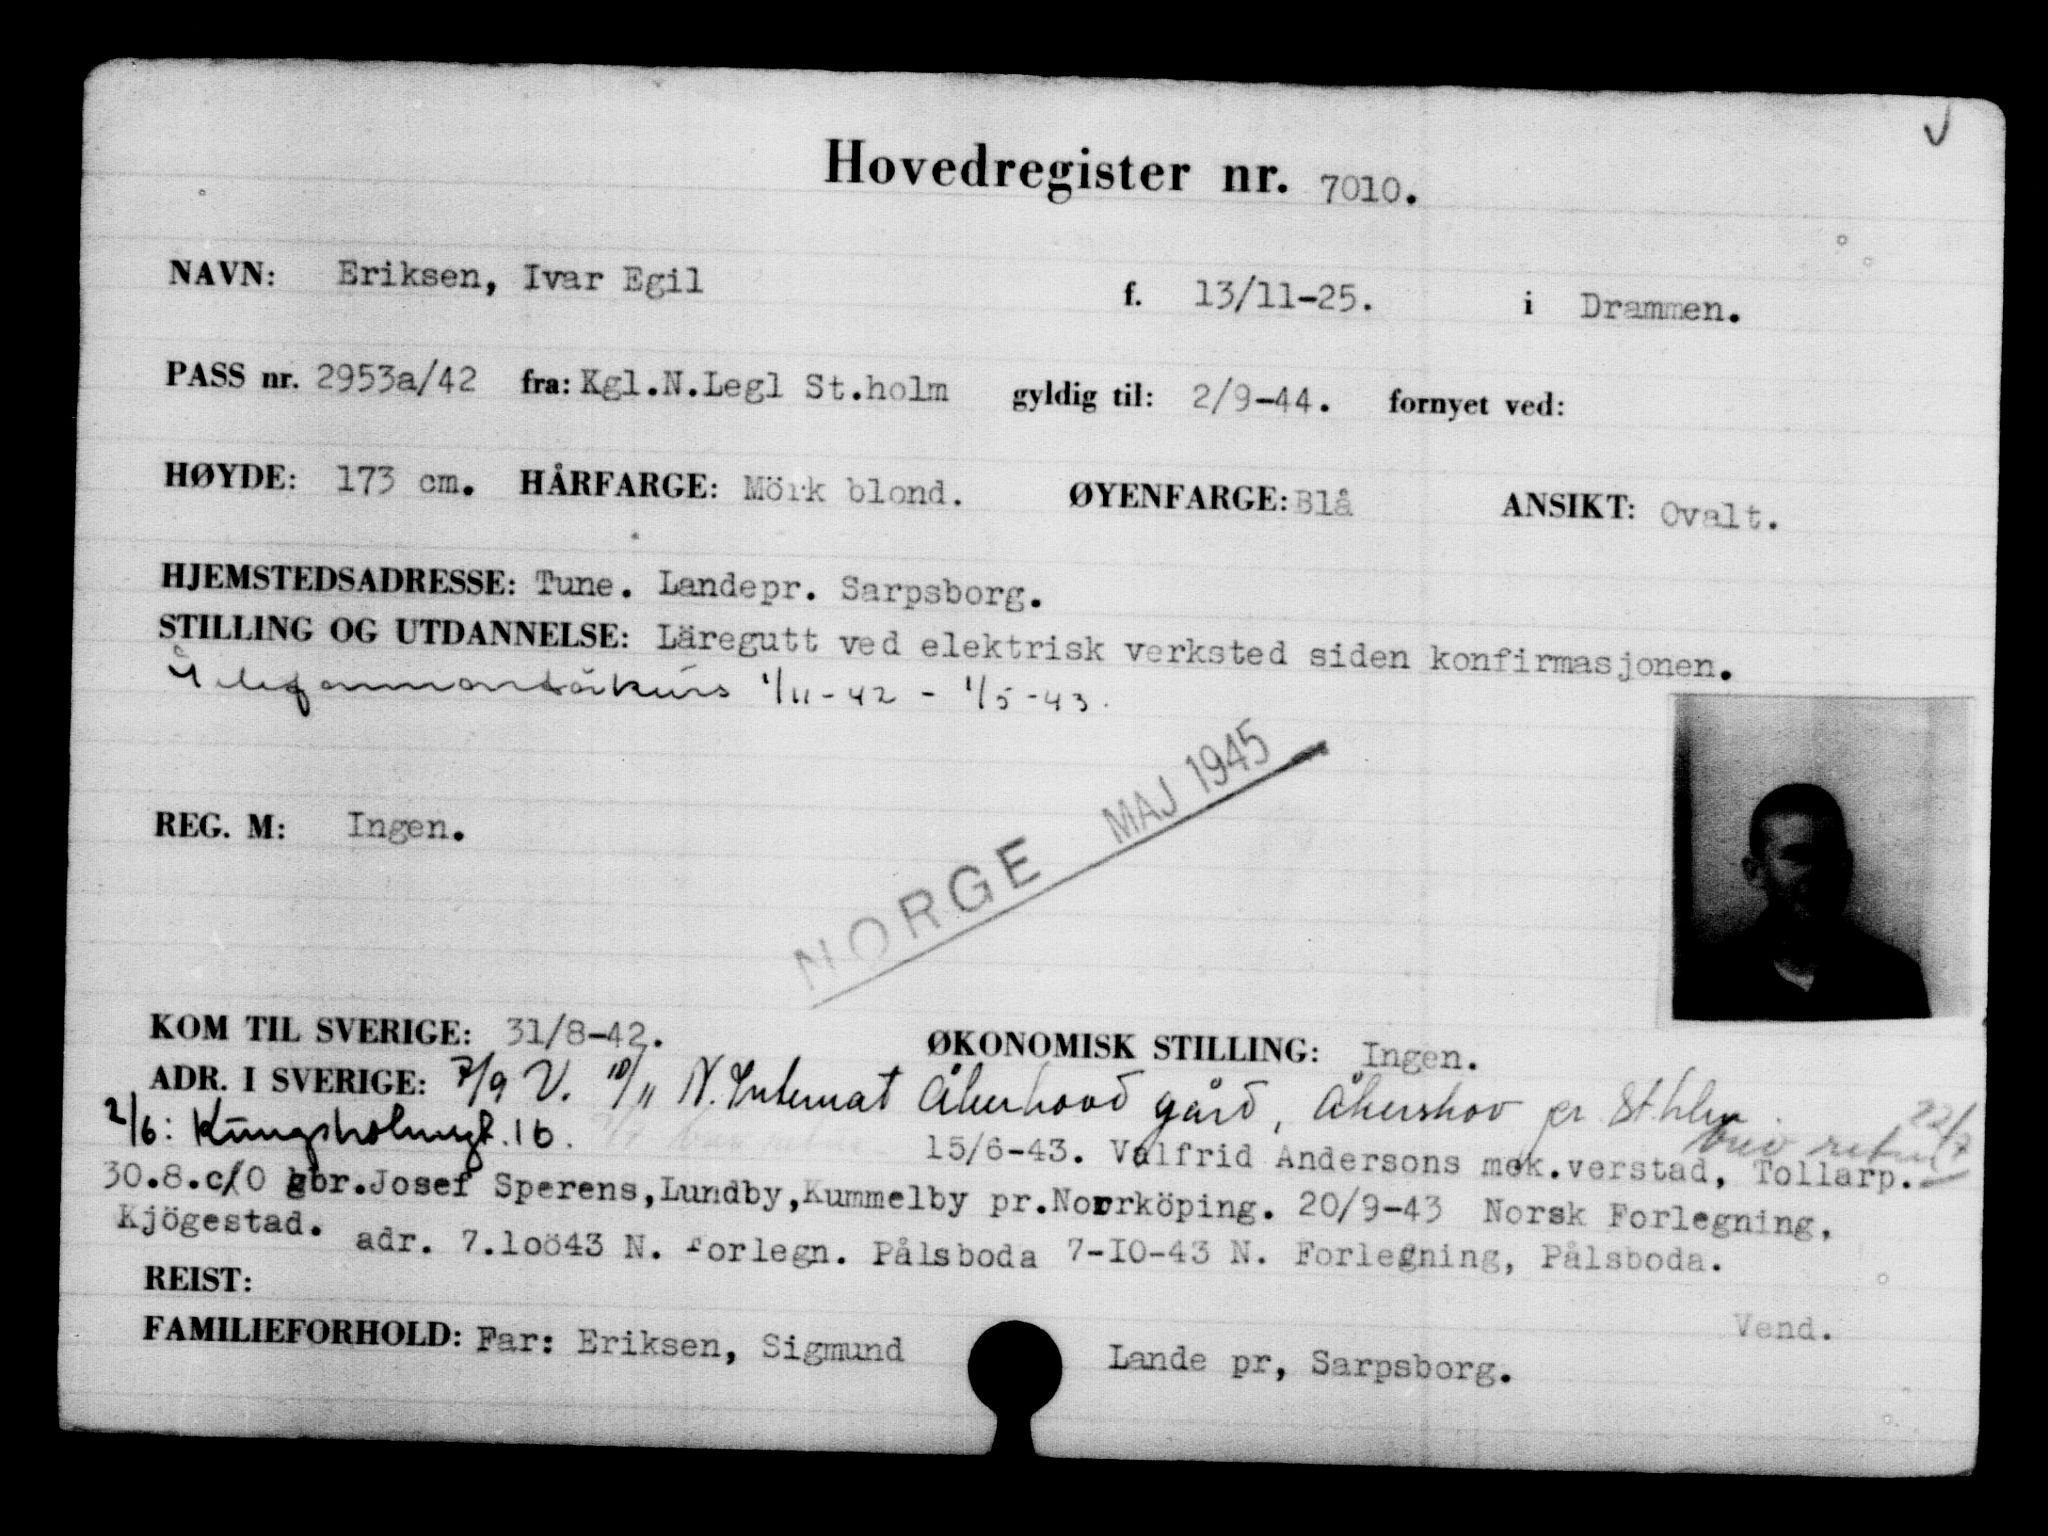 Hovedregister nr. 7010.
NAVN: Eriksen, Ivar Egil f. 13/11-25. i Drammen.
PASS nr. 2953a/42 fra: Kgl.N.Legl St.holm gyldig til: 2/9-44. fornyet ved:
HØYDE: 173 cm. HÅRFARGE: Mörk blond. ØYENFARGE: Blå ANSIKT: Ovalt.
HJEMSTEDSADRESSE: Tune. Landepr. Sarpsborg.
STILLING OG UTDANNELSE: Läregutt ved elektrisk verksted siden konfirmasjonen.
Telefonmontörkurs 1/11-42 - 1/5-43.
NORGE MAJ 1945
REG. M: Ingen.
KOM TIL SVERIGE: 31/8-42. ØKONOMISK STILLING: Ingen.
ADR. I SVERIGE: 7/9 V. 10/11 N. Internat Åkershovd gård, Åkershov pr Sthlm
2/6: Kungsholmsgt. 16. 22/7 brev retur
15/6-43. Valfrid Andersons mek.verstad, Tollarp.
30.8.c/O gbr.Josef Sperens,Lundby,Kummelby pr.Norrköping. 20/9-43 Norsk Forlegning,
Kjögestad. adr. 7.1oö43 N. forlegn. Pålsboda 7-IO-43 N. Forlegning, Pålsboda.
REIST:
Vend.
FAMILIEFORHOLD: Far: Eriksen, Sigmund Lande pr, Sarpsborg.